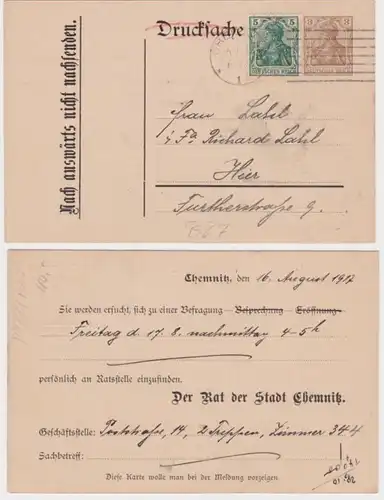 Nach auswärts nicht nachsenden.
Drucksache
5 5
DEUTSCHES REICH
3 3
DEUTSCHES REICH
Frau Lahl
Fa Richard Lahl
Hier
Furtherstraße 9.
Chemnitz, den 16. August 1917
Sie werden ersucht, sich zu einer Befragung Besprechung Eröffnung
Freitag d 17. 8. nachmittag 4-5h
persönlich an Ratsstelle einzufinden.
Der Rat der Stadt Chemnitz.
Geschäftsstelle: Poststraße, 14, 2 Treppen, Zimmer 344
Sachbetreff:
Diese Karte wolle man bei der Meldung vorzeigen